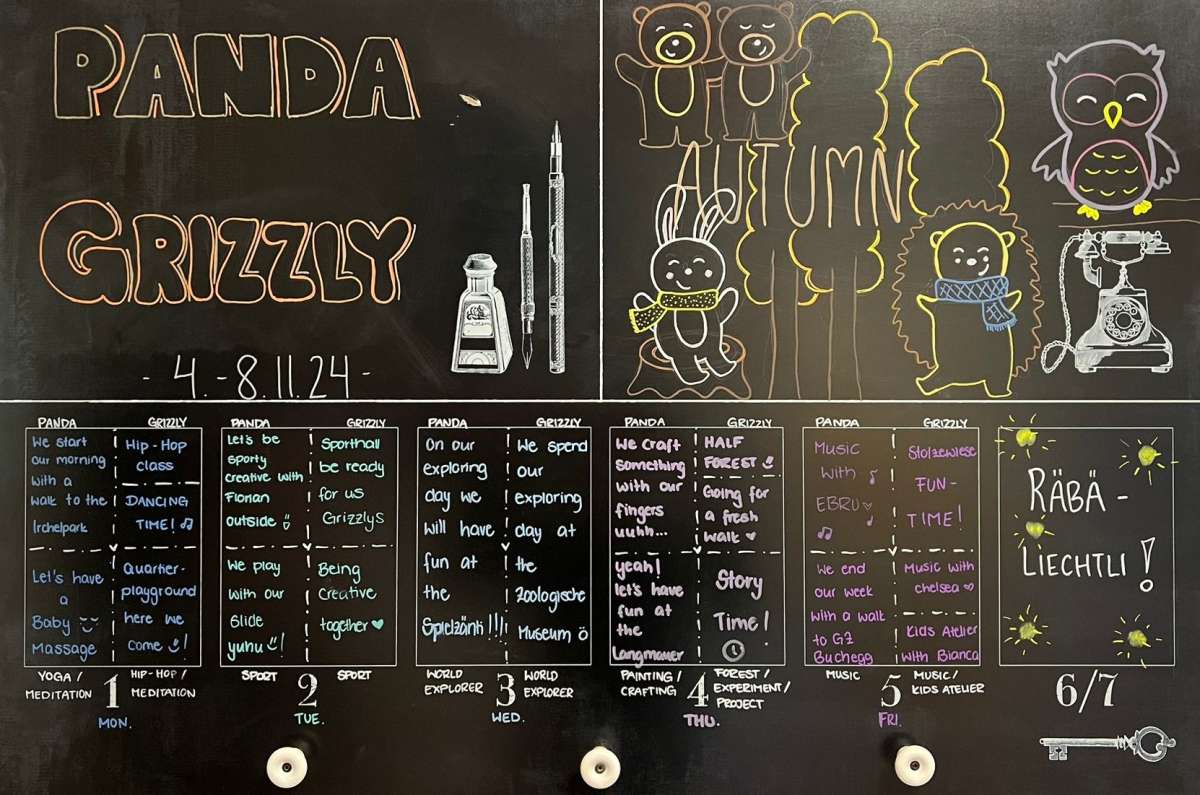 PANDA
GRIZZLY
- 4.-8.11.24 -
AUTUMN
PANDA
We start
our morning
with a
walk to the
Irchelpark
Let's have
a
Baby
Massage
YOGA /
MEDITATION
GRIZZLY
Hip-Hop
class
DANCING
TIME!
Quartier-
playground
here we
come !
HIP-HOP /
MEDITATION
1
MON.
PANDA
Let's be
sporty
creative with
Florian
outside
We play
with our
Slide
yuhu !
SPORT
GRIZZLY
Sporthall
be ready
for us
Grizzlys
Being
Creative
together
SPORT
2
TUE.
PANDA
On our
exploring
day we
will have
fun at
the
Spielzänti !!!
WORLD
EXPLORER
GRIZZLY
We spend
our
exploring
day at
the
Zoologische
Museum ö
WORLD
EXPLORER
3
WED.
PANDA
We craft
something
with our
fingers
uuhh...
yeah!
let's have
fun at
the
Langmauer
PAINTING /
CRAFTING
GRIZZLY
HALF
FOREST
Going for
a fresh
walk
Story
Time!
FOREST /
EXPERIMENT /
PROJECT
4
THU.
PANDA
Music
with
EBRU
We end
our week
with a walk
to GZ
Buchegg
MUSIC
GRIZZLY
Stolzewiese
FUN-
TIME!
Music with
chelsea
Kids Atelier
with Bianca
MUSIC /
KIDS ATELIER
5
FRI.
RÄBÄ-
LIECHTLI!
6/7